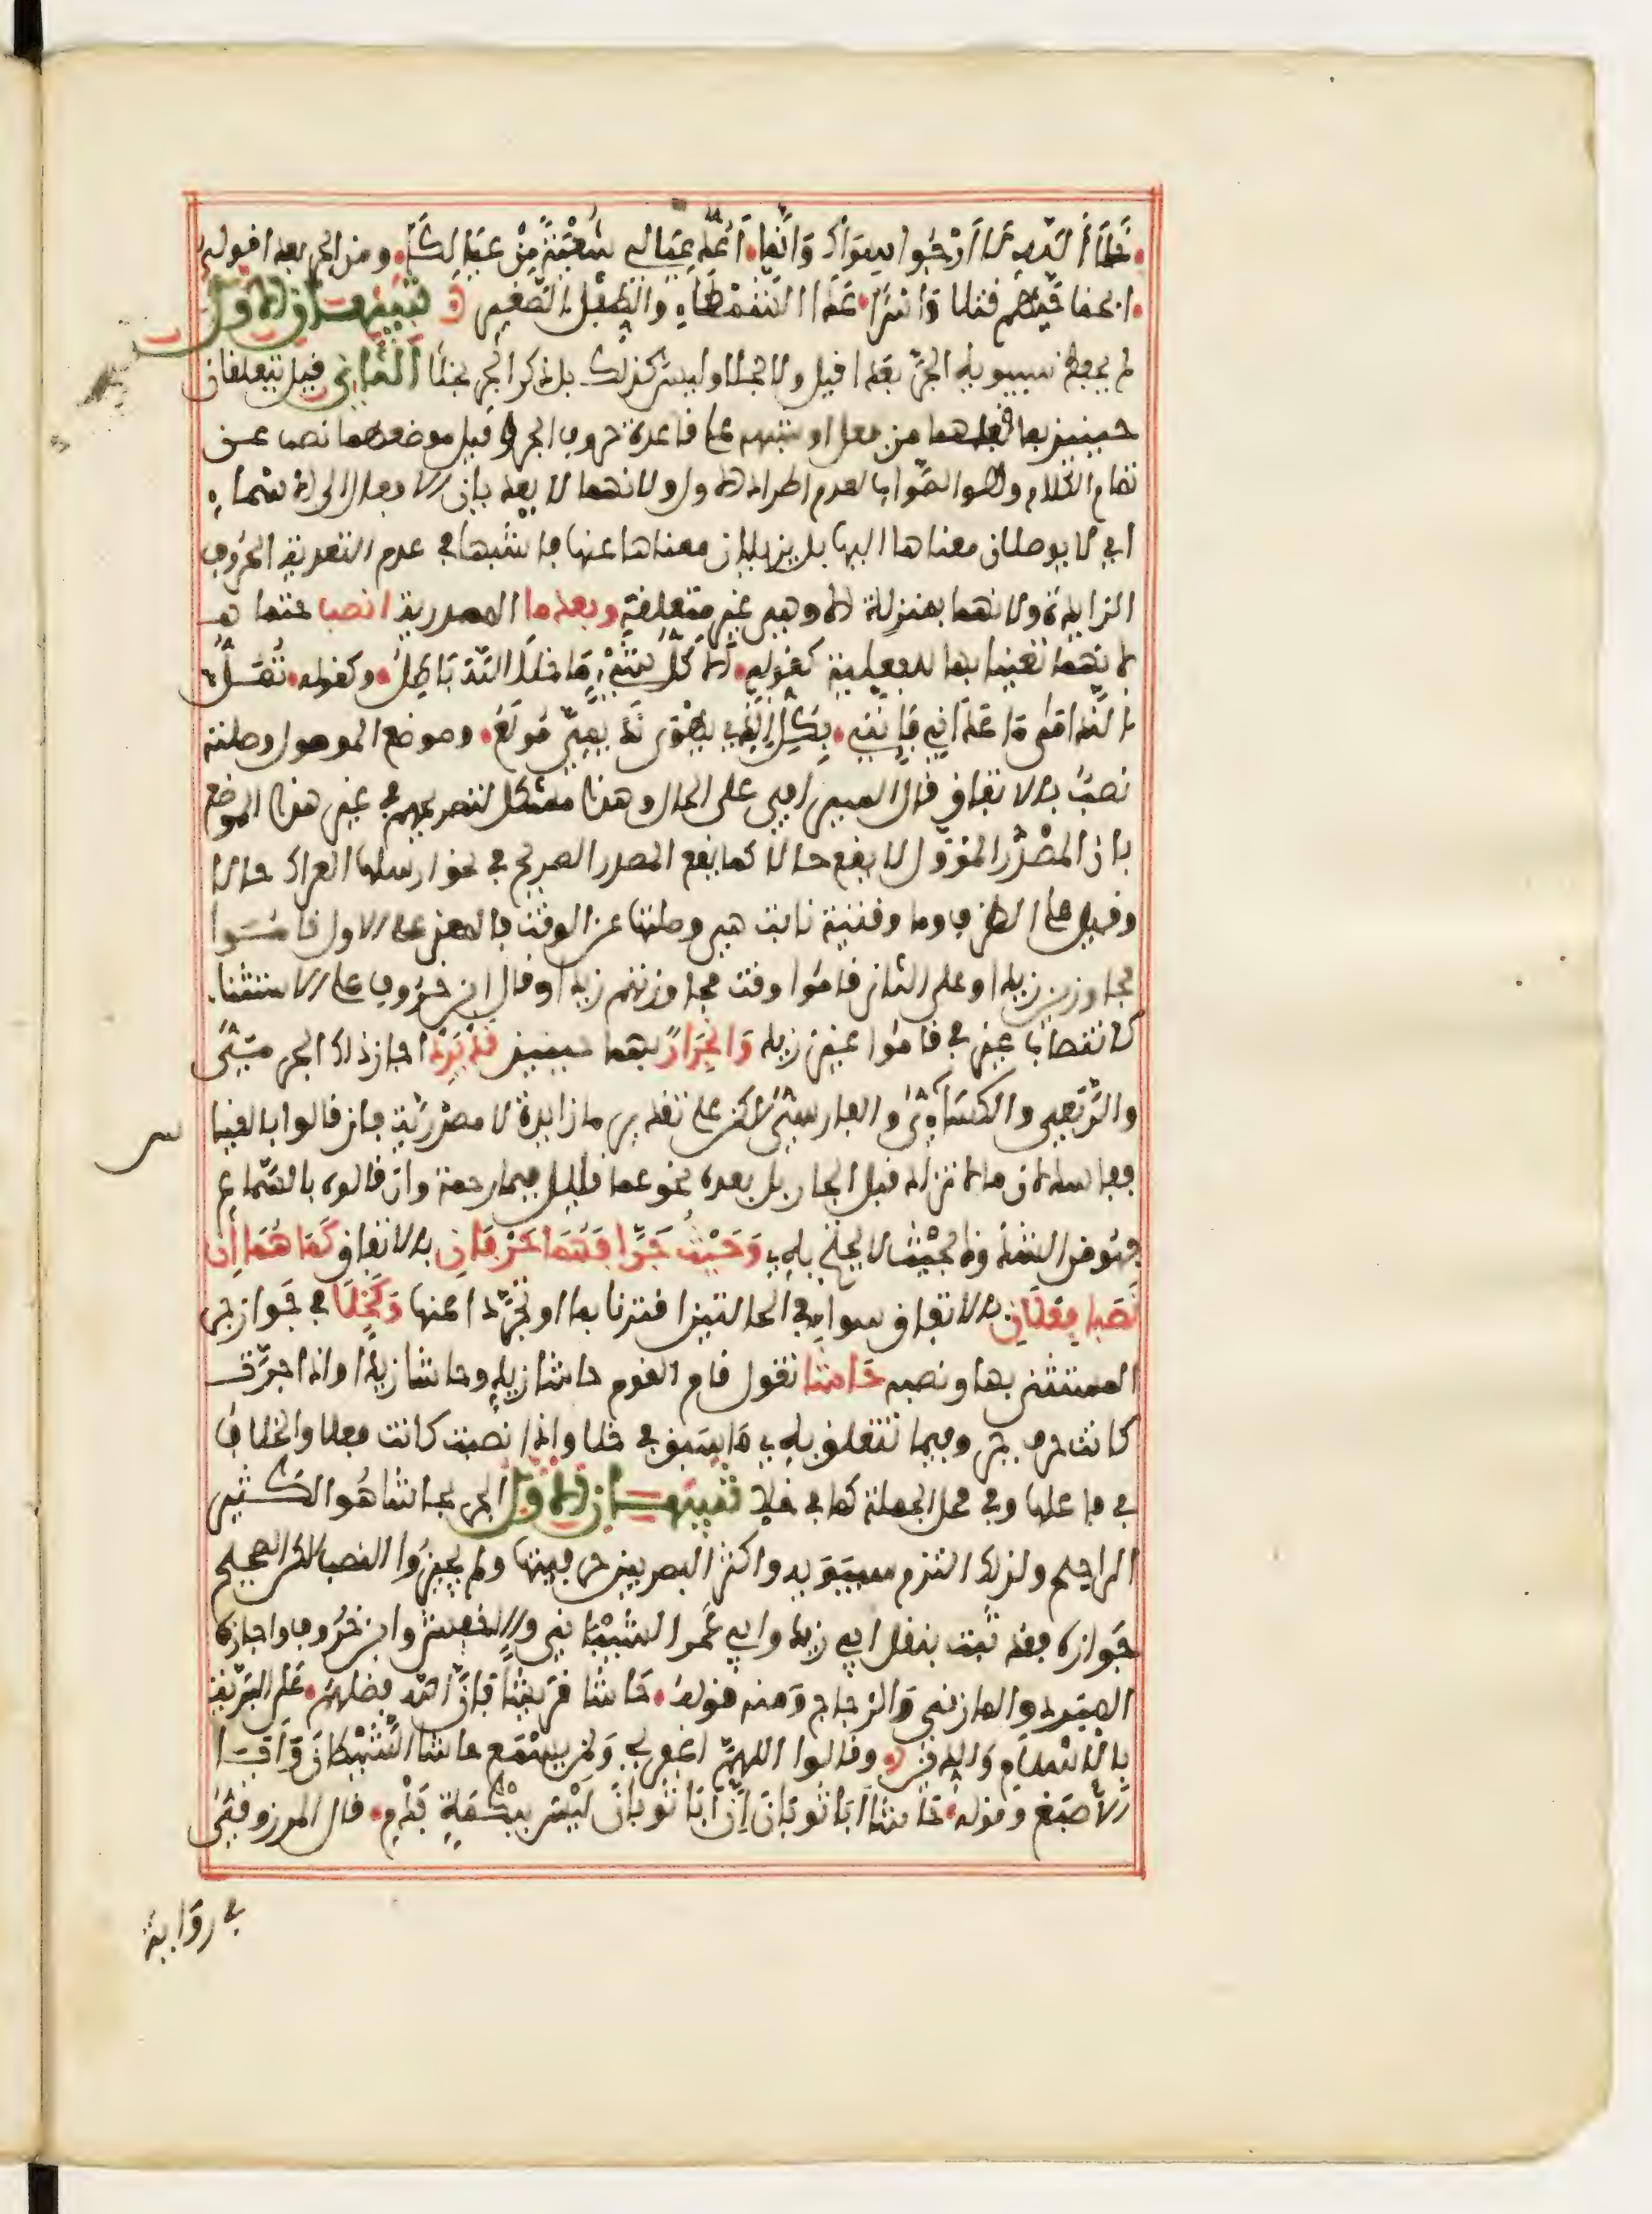 خَلَا اللهِ لَا أَرْجُوا سِوَاكَ وَإِنَّمَا أَعُدُّ عِيَالِي شُعْبَةً مِنْ عِيَالِكَا ومن الجر بعدا قوله
ابحنا حيهم قتلا وَاسْرًا عَدَا الشَّمْطَاءِ والطِّفْلِ الصَّغير تنبيهان الاول
لم يحفظ سيبويه الجرَّ بعدا قيل ولا بخلا وليس كذلك بل ذكر الجر بخلا الثاني قيل يتعلقان
حينيذ بما قبلهما من فعل او شبهه على قاعدة حروف الجر وقيل موضعهما نصب عن
تمام الكلام وهو الصَّواب لعدم اطراد الاول ولانهما لا يعديان الافعال الى الاسماء
اي لا يوصلان معناها اليها بل يزيلان معناها عنها فاشبها في عدم التعدية الحروف
الزايدة ولانهما بمنزلة الا وهي غير متعلقة وبعد ما المصدرية انصب حتما هـ
لانهما تعينا بها للفعلية كقوله أَلَا كُلُّ شَيْءٍ مَا خَلَا اللَّهَ بَاطِلُ وكقوله تُمَلُّ
النَّدَامَى مَا عَدَانِي فَإِنَّنِي بِكُلِّ الَّذِي يَهْوَى نَدِيمِيَ مُولَعُ وموضع الموصول وصلته
نصبٌ بالاتفاق فقال السيرافي على الحال وهذا مشكل لتصريحهم في غير هذا الموضع
بان المصْدر المؤوَّل لا يقع حالا كما يقع المصدر الصريح في نحو ارسلها العراك حالا
وقيل على الظرف وما وقتية نابت هي وصلتها عن الوقت فالمعنى على الاول قاموا
مجاوزين زيدا وعلى الثاني قاموا وقت مجاوزتهم زيدا وقال ابن خروف على الاستثناء
كانتصاب غير في قاموا غيرَ زيد وَانْجِرَارٌ بهما حينيذ قَدْ يَرِدْ اجاز ذلك الجرمِيُّ
والرَّبَعِي والكسَاءِيُّ والفارسيُّ لاكن على تقدير ما زايدة لا مصدرية فان قالوا بالقياس
ففاسد لان ما لا تزاد قبل الجار بل بعده نحو عما قليل فبما رحمة وان قالوه بالسَّماع
فهو من الشذوذ بحيْث لا يحتج به وَحَيْثُ جَرَّا فَهُمَا حَرْفَانِ بالاتفاق كَمَا هُمَا إِنْ
نَصَبَا فِعْلَانِ بالاتفاق سواء في الحالتين اقترنا بما او تجرَّدا عنها وَكَخَلَا في جَواز جر
المستثنى بها ونصبه حَاشَا تقول قام القوم حاشا زيدٍ وحاشا زيدًا واذا جرَّت
كانت حرف جر وفيما تتعلق به مَا سبق في خلا واذا نصبت كانت فعلا والخلاف
في فاعلها وفي محل الجملة كما في خلا تنبيهان الاول الجر بحاشا هُو الكثير
الراجح ولذلك التزم سيبَوَيه واكثر البصريين حرفيتها ولم يجيزُوا النصب لاكن الصحيح
جَوازه فقد ثبت بنقل ابي زيد وابي عَمرو الشيْبَاني والاخفش وابن خرُوف واجازه
المبَرد والمازني وَالزجاج وَمنه قولهُ حَاشَا قُرَيْشًا فَإِنَّ اللَّهَ فَضَّلَهُمْ عَلَى الْبَرِيَّةِ
بِالْإِسْلَامِ وَالدِّينِ وقَالوا اللهمَّ اغفر لي وَلمن يسْمَع حاشا الشَّيْطَانَ وَأَبَا
الأَصْبَغ وَقوله حَاشَا أَبَا ثَوْبَانَ إِنَّ أَبَا ثَوْبَانَ لَيْسَ بِبُكْمَةٍ فَدْمِ قال المرزوقيُّ
في رِوَاية